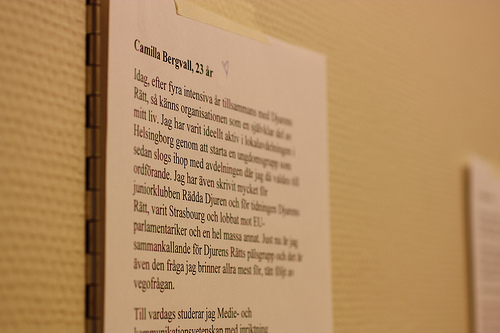 Camilla Bergvall, 23 år
Idag, efter fyra intensiva år tillsammans med Djurens
Rätt, så känns organisationen som en självklar del av
mitt liv. Jag har varit ideellt aktiv i lokalavdelningen i
Helsingborg genom att starta en ungdomsgrupp som
sedan slogs ihop med avdelningen där jag då valdes till
ordförande. Jag har även skrivit mycket för
juniorklubben Rädda Djuren och för tidningen Djurens
Rätt, varit Strasbourg och lobbat mot EU-
parlamentariker och en hel massa annat. Just nu är jag
sammankallande för Djurens Rätts pälsgrupp och det är
även den fråga jag brinner allra mest för, tätt följt av
vegofrågan.
Till vardags studerar jag Medie- och
kommunikationsvetenskap med inriktning